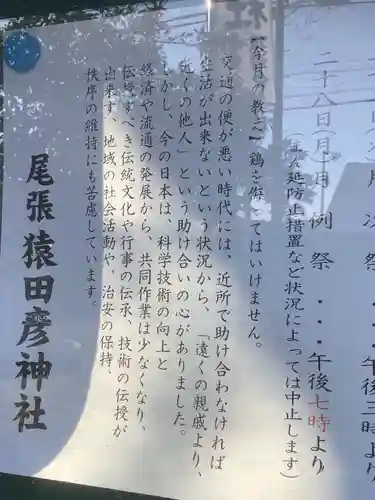 月次祭・・・午後三時より
二十八日(月) 例祭・・・午後七時より
(まん延防止措置など状況によっては中止します)
【今月の教え】鶏を侮ってはいけません。
交通の便が悪い時代には、近所で助け合わなければ
生活が出来ないという状況から、「遠くの親戚より、
近くの他人」という助け合いの心がありました。
しかし、今の日本は、科学技術の向上と
経済や流通の発展から、共同作業は少なくなり、
伝授すべき伝統文化や行事の伝承、技術の伝授が
出来ず、地域の社会活動や、治安の保持、
秩序の維持にも苦慮しています。
尾張猿田彦神社